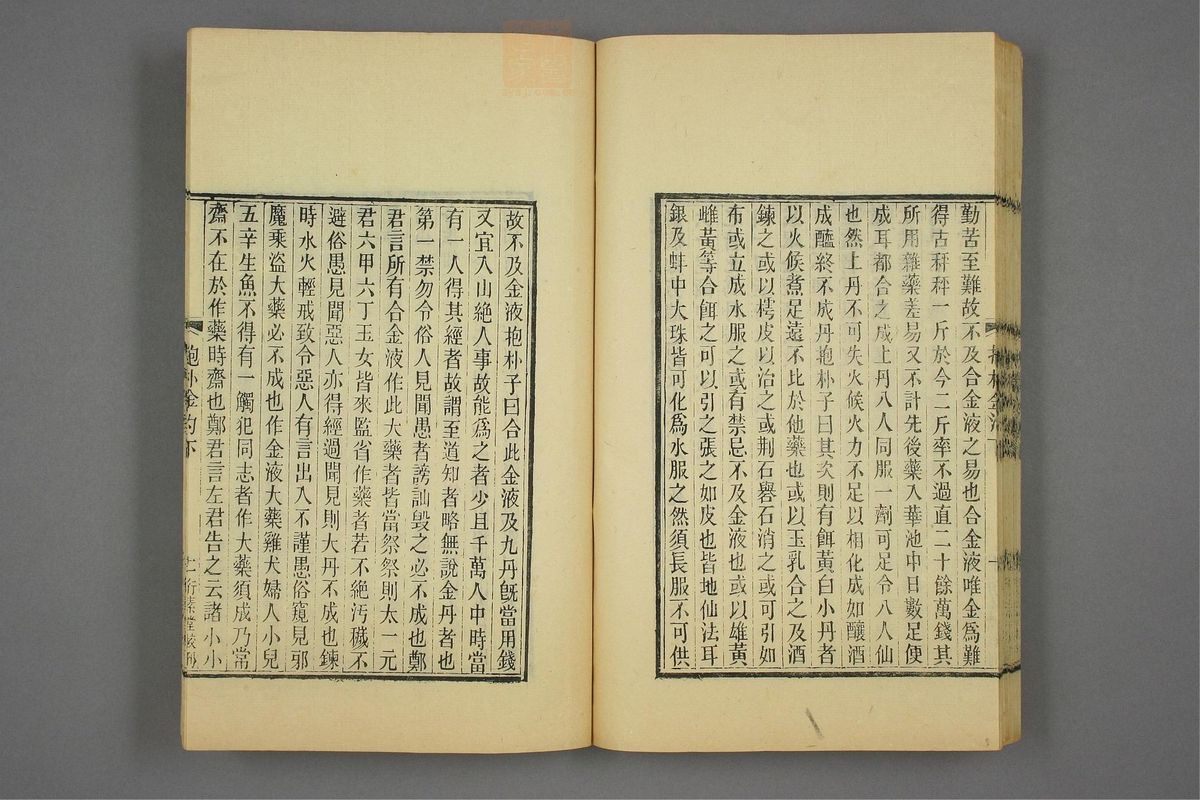 勤苦至難故不及合金液之易也合金液唯金爲難
得古秤秤一斤於今二斤率不過直二十餘萬錢其
所用雜藥差易又不計先後藥入華池中日數足便
成耳都合之成上丹八人同服一劑可足令八人仙
也然上丹不可失火候火力不足以相化成如釀酒
成醯終不成丹抱朴子曰其次則有餌黃白小丹者
以火候煮足遠不比於他藥也或以玉乳合之及酒
鍊之或以樗皮以治之或荆石礜石消之或可引如
布或立成水服之或有禁忌不及金液也或以雄黃
雌黃等合餌之可以引之張之如皮也皆地仙法耳
銀及蚌中大珠皆可化爲水服之然須長服不可供
故不及金液抱朴子曰合此金液及九丹旣當用錢
又宜入山絶人事故能爲之者少且千萬人中時當
有一人得其經者故謂至道知者略無說金丹者也
第一禁勿令俗人見聞愚者謗訕毀之必不成也鄭
君言所有合金液作此大藥者皆當祭祭則太一元
君六甲六丁玉女皆來監省作藥者若不絶汚穢不
避俗愚見聞惡人亦得經過聞見則大丹不成也鍊
時水火輕戒致令惡人有言出入不謹愚俗窺見邪
魔乘盜大藥必不成也作金液大藥雞犬婦人小兒
五辛生魚不得有一觸犯同志者作大藥須成乃常
齋不在於作藥時齋也鄭君言左君告之云諸小小
抱朴金汋下